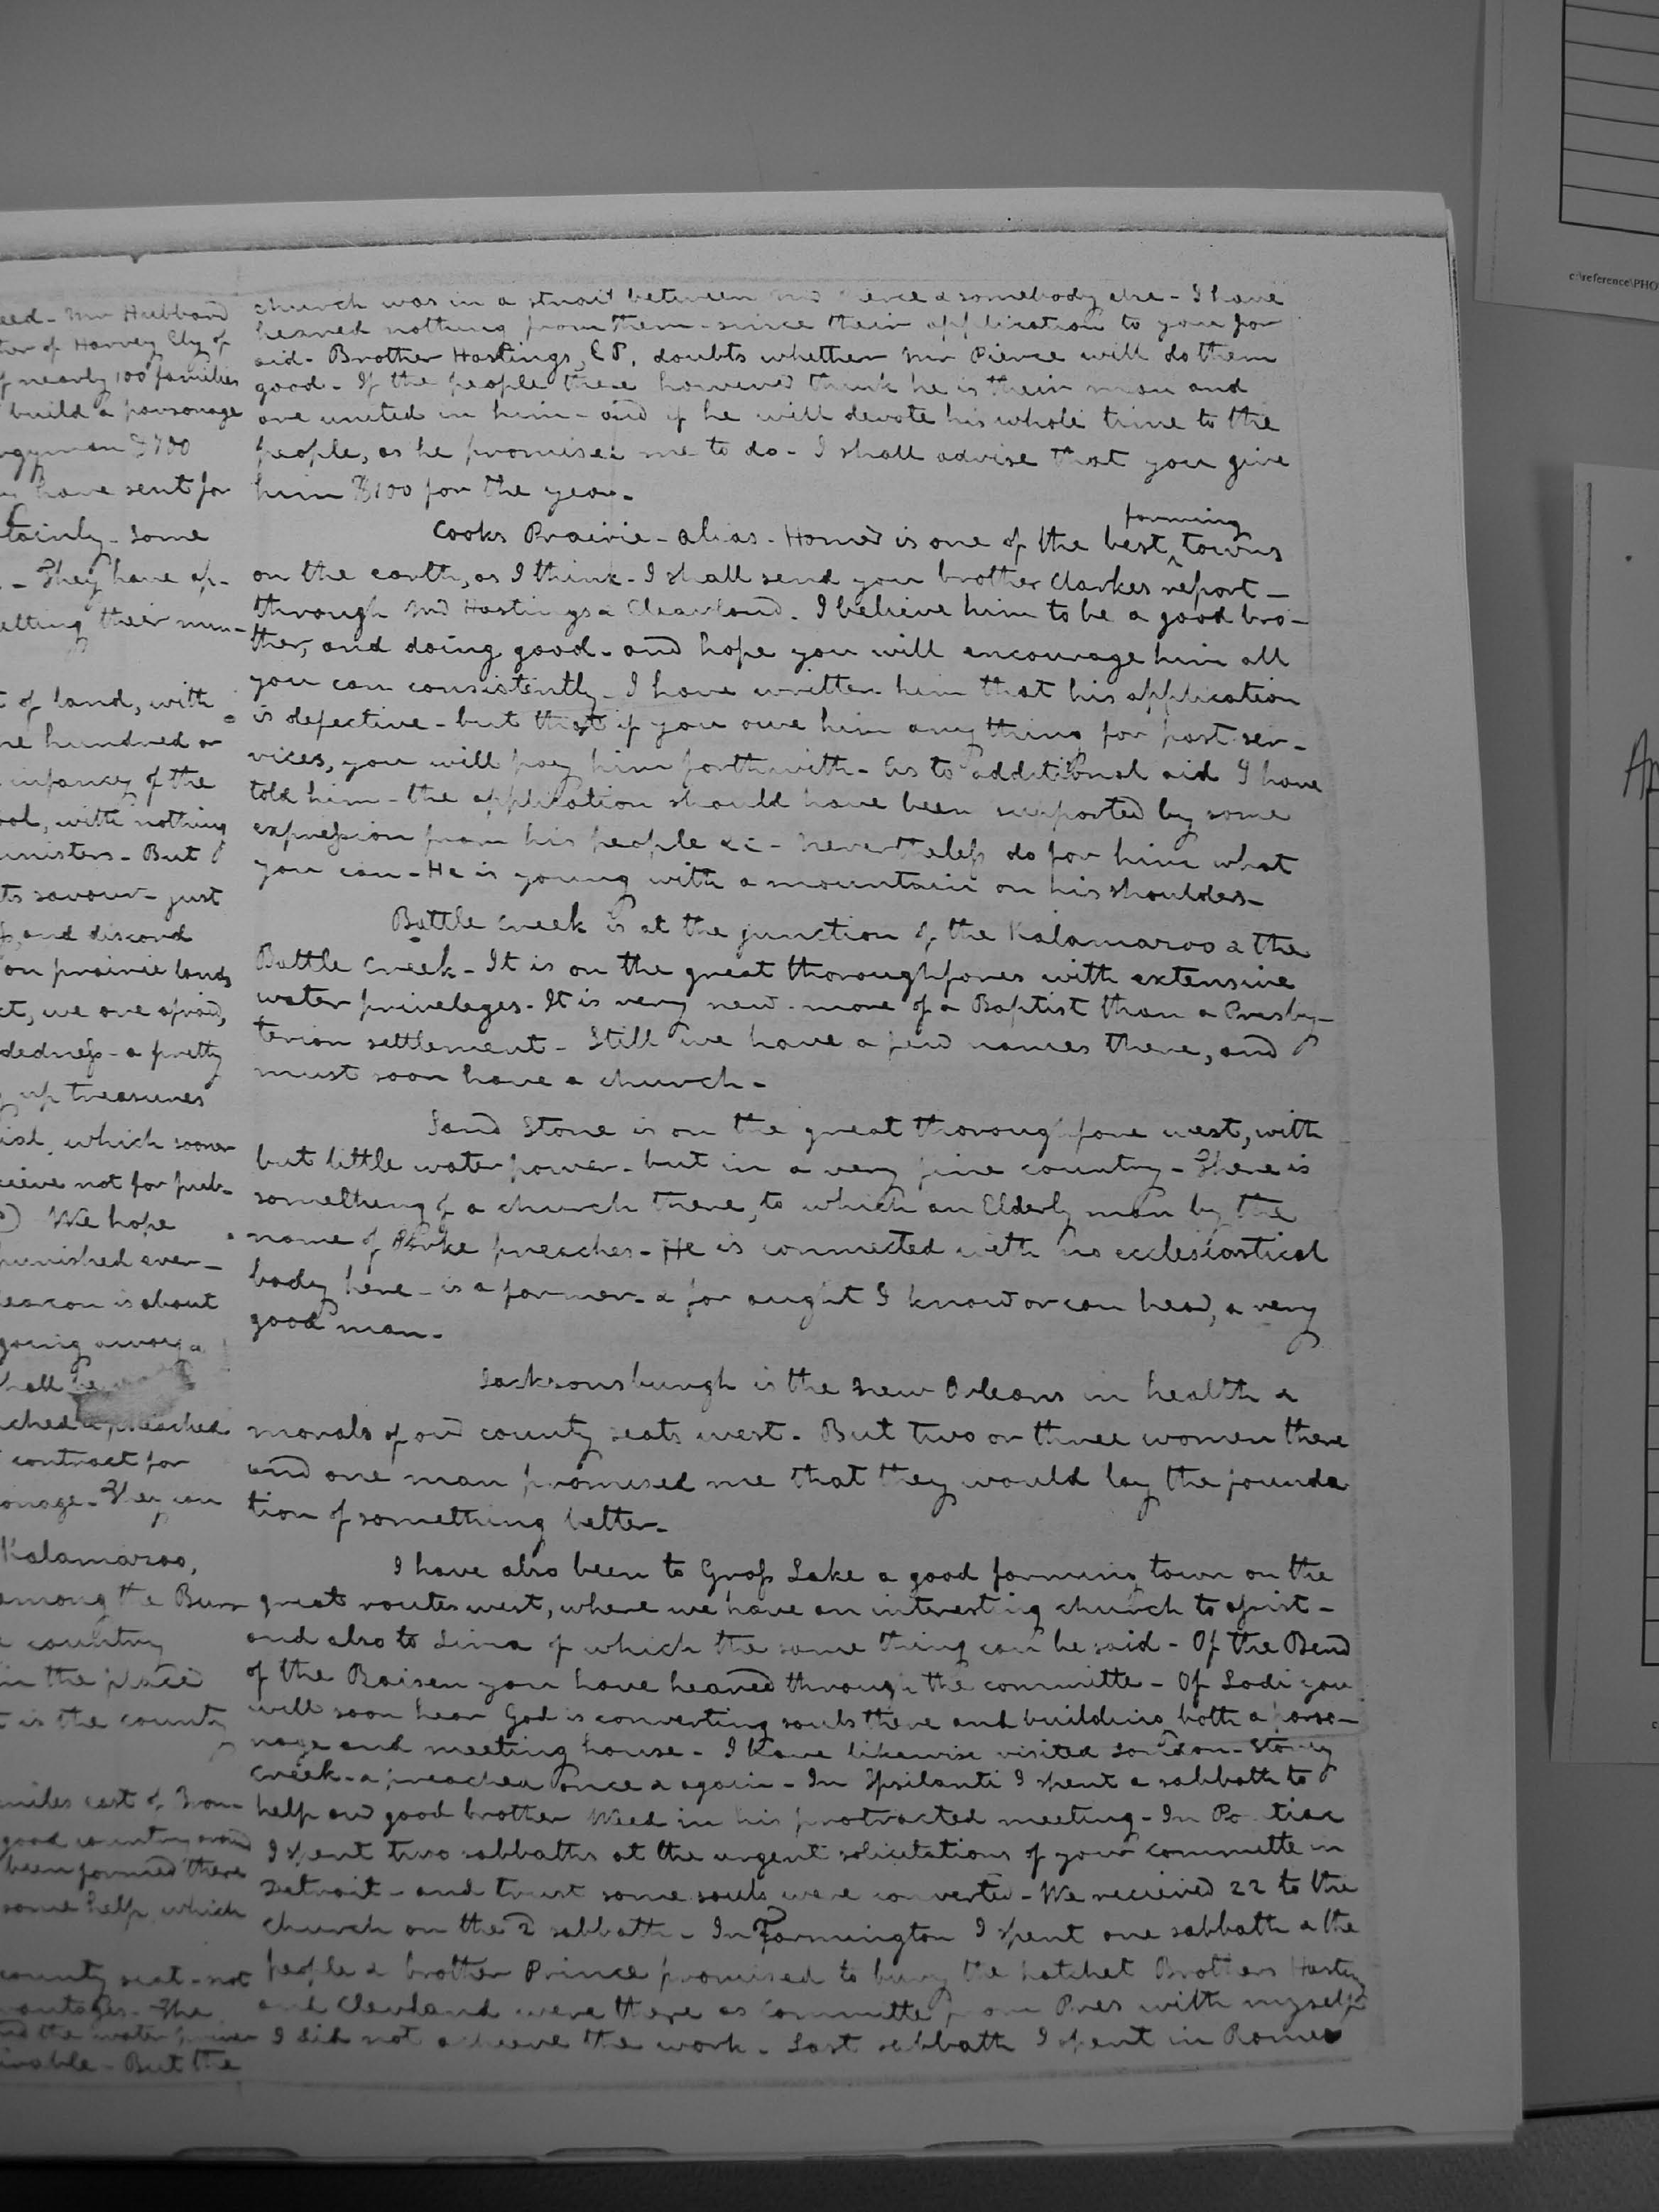 eed - Mr Hubbard
ter of Harvey Ely of
f nearly 100 families
build a parsonage
gyman $100
have sent for
tainly - Some
- They have ap-
etting their min-
t of land, with
ne hundred or
infancy of the
ool, with nothing
ministers - But
ts savour - just
and discord
on prairie lands
ct, we are afraid,
dedness - a pretty
up treasures
ial, which sooner
ceive not for preb-
We hope
punished ever-
deacon is about
going away &
hall be
ached & preached
contract for
onage - They can
Kalamazoo,
among the Burr
country
in the place
t is the county
miles east of Bron-
good country around
been formed there
some help which
county seat - not
vantages. The
and the water power
inable - But the
church was in a strait between Mr Pierce & somebody else - I have
heared nothing from them - since their application to you for
aid - Brother Hastings, E P. doubts whether Mr Pierce will do them
good - If the people there however think he is their man and
are united in him - and if he will devote his whole time to the
people, as he promised me to do - I shall advise that you give
him $100 for the year -
farming
Cooks Prairie - alias - Homer is one of the best ^ towns
on the earth, as I think - I shall send you brother Clarkes report -
through Mr Hastings & Cleaveland. I believe him to be a good bro-
ther, and doing good - and hope you will encourage him all
you can consistently - I have written him that his application
is defective - but that if you owe him any thing for past ser-
vices, you will pay him forthwith - As to additional aid I have
told him - the application should have been supported by some
expression from his people &c - nevertheless do for him what
you can - He is young with a mountain on his shoulders -
Battle Creek is at the junction of the Kalamazoo & the
Battle Creek - It is on the great thoroughfares with extensive
water priveleges - It is very new - more of a Baptist than a Presby-
terian settlement - Still we have a few names there, and
must soon have a church -
Sand Stone is on the great thoroughfare west, with
but little water power - but in a very fine country - There is
something of a church there, to which an Elderly man by the
name of preaches - He is connected with no ecclesiastical
body here - is a farmer - & for aught I know or can hear, a very
good man -
Jacksonsburgh is the New Orleans in health &
morals of our county seats west - But two or three women there
and one man promised me that they would lay the founda
tion of something better -
I have also been to Grass Lake a good farming town on the
great routes west, where we have an interesting church to assist -
and also to Lima of which the same thing can be said - Of the Bend
of the Raisen you have heared through the committe - Of Lodi you
will soon hear God is converting souls there and building both a parso-
nage and meeting house - I have likewise visited London - Stoney
Creek - & preached once & again - In Ypsilanti I spent a sabbath to
help our good brother Weed in his protracted meeting - In Pontiac
I spent two sabbaths at the urgent solicitations of your committe in
Detroit - and trust some souls were converted - We recieved 22 to the
church on the 2 sabbath - In Farmington I spent one sabbath & the
people & brother Prince promised to bury the hatchet Brothers Hastings
and Clevland were there as Committe from Pres with myself
I did not achieve the work - Last sabbath I spent in Romeo
c:\reference\PHO